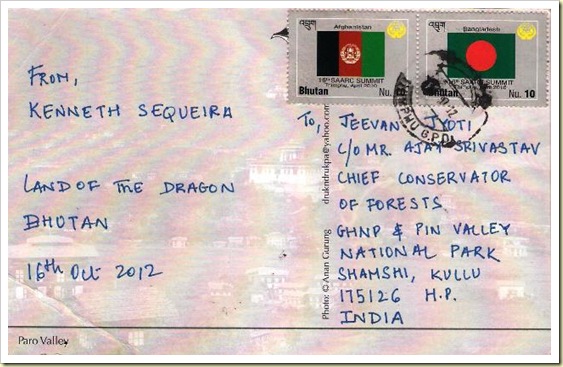 Afghanistan
16th SAARC SUMMIT
Thimphu, April 2010
Bhutan Nu. 10
Bangladesh
16th SAARC SUMMIT
Thimphu, April 2010
Bhutan Nu. 10
G.P.O.
FROM,
KENNETH SEQUEIRA
LAND OF THE DRAGON
BHUTAN
16th Oct 2012
Photo: © Anan Gurung drukndrukpa@yahoo.com
TO, JEEVAN JYOTI
C/O MR. AJAY SRIVASTAV
CHIEF CONSERVATOR
OF FORESTS
GHNP & PIN VALLEY
NATIONAL PARK
SHAMSHI, KULLU
175126 H.P.
INDIA
Paro Valley